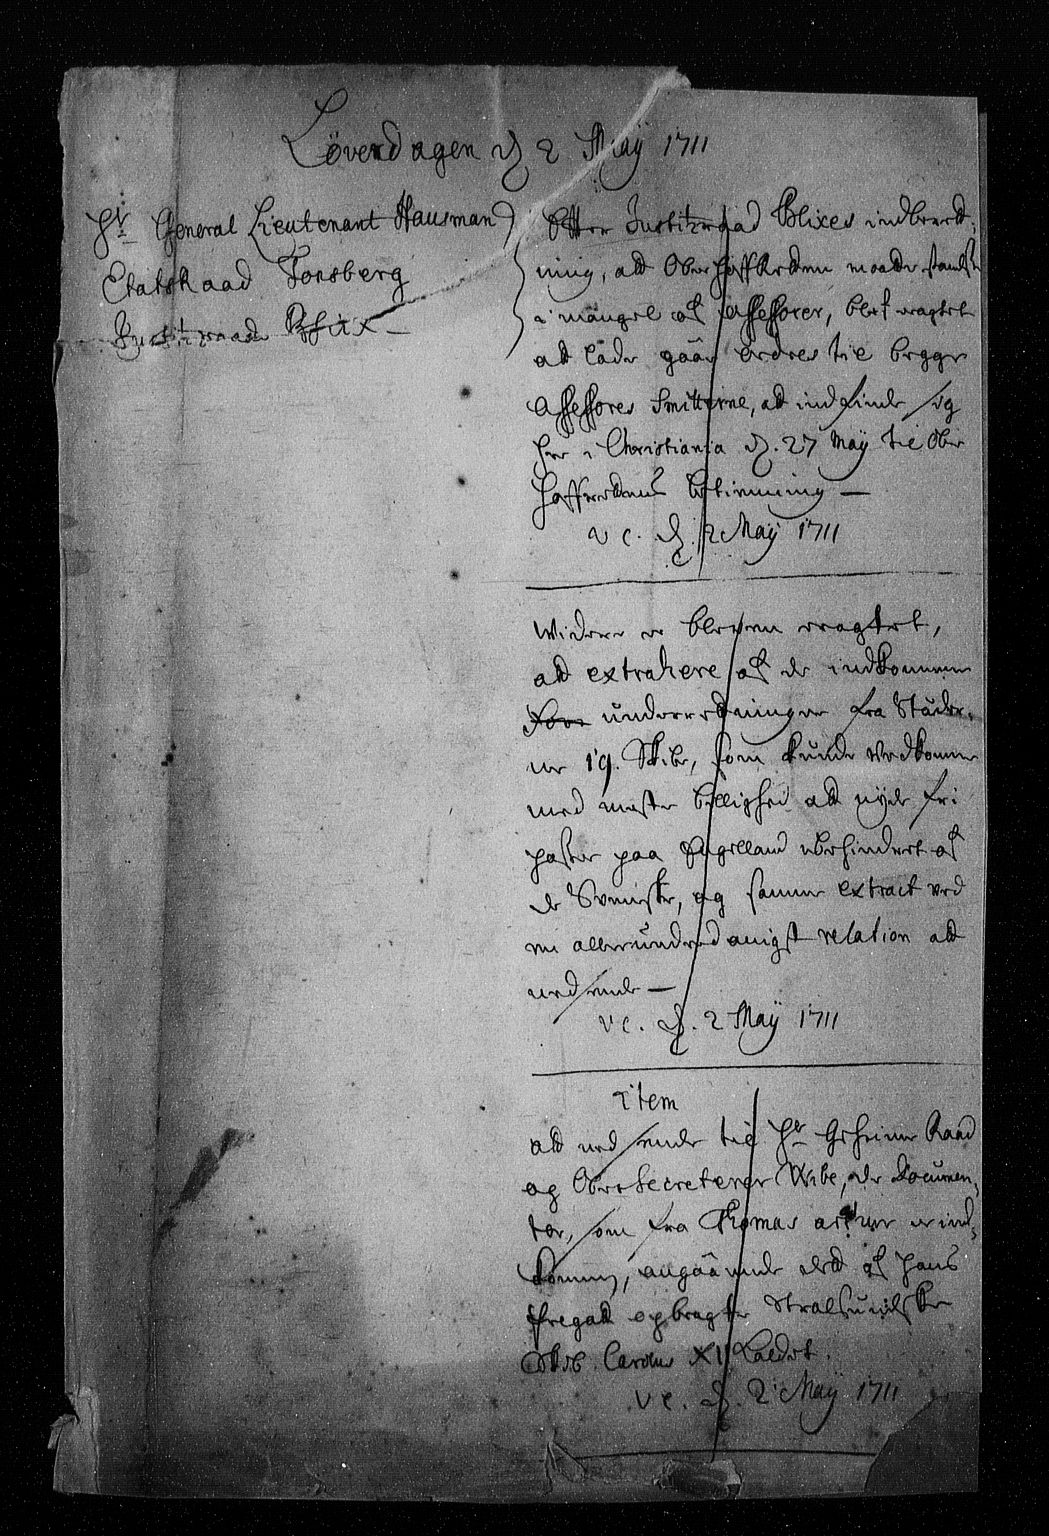 Løverdagen d 2 Maÿ 1711
Hr General Lieutenant Hausman
Etatsraad Tonsberg
Justitzraad Blix
Efter Justitzraad Blixes indberet-
ning, att OberHoffRetten maatte standse
i mangel af Assessorer, blef eragtet
att lade gaa ordres til begge
Assessores Smitterne, att indfinde sig
her i Christiania d. 27 Maÿ til Ober
Hoffrettens betienning —
v c. d. 2 Maÿ 1711
Widere er bleven eragtet,
att extrahere af de indkomne
underretninger fra Stæder-
ne 19. Skibe, som kunde vedkomme
med meste billighed att nÿde fri
passer paa Engelland uberhindret af
de Svenske, og samme extract ved
en allerunderdanigst relation att
nedsende —
v c. d. 2 Maÿ 1711
item
att nedsende til Hr Geheime Raad
og Obersecreterer Wibe, de Documen-
ter, som fra Thomas er ind-
kommen, angaaende det af hans
Fregat opbragte Stralsundske
Skib Carolus XII kaldet.
v c. d. 2 Maÿ 1711